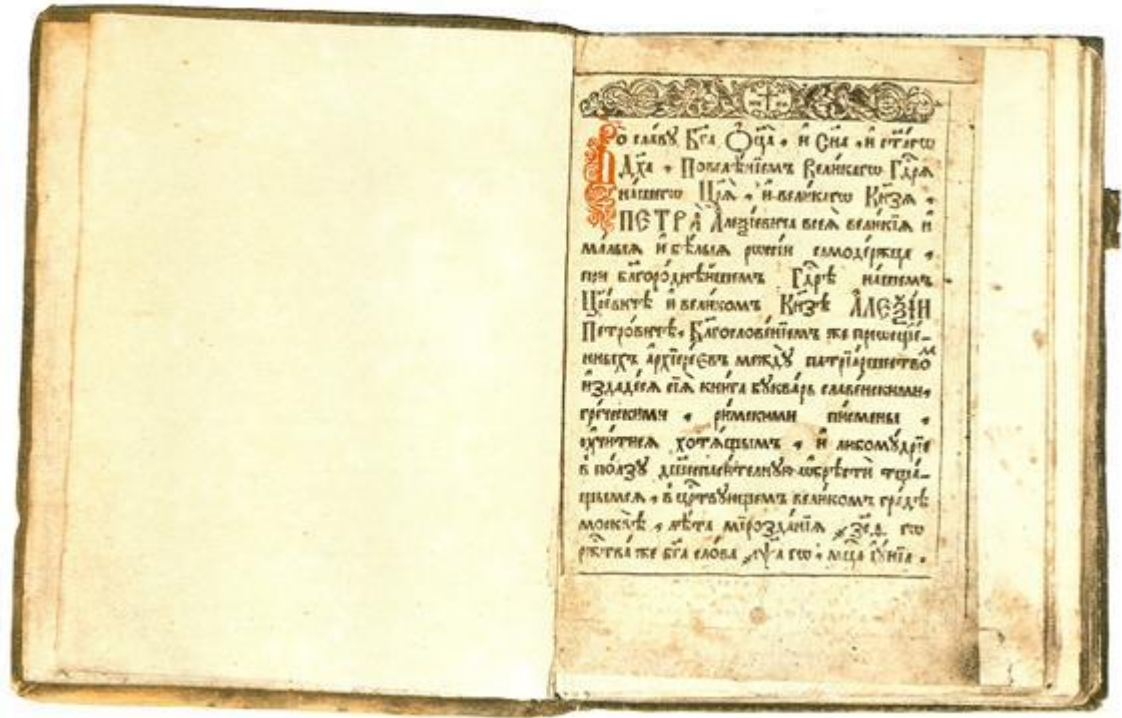 Во славу Бг҃а Ѻц҃а, и Сн҃а, и ст҃агѡ
Дх҃а, Повелѣнїемъ Великагѡ Гдⷭ҇ря
нашегѡ Цр҃я, и великагѡ Кн҃зя,
ПЕТРА̀ Алеѯїевича всея̀ великїя и
малыя и бѣлыя рѡссїи самодержца,
при бл҃городнѣйшемъ Гдⷭ҇рѣ нашемъ
Цр҃евичѣ и великомъ Кн҃зѣ АЛЕѮІИ
Петровичѣ, Бл҃гословенїемъ же преѡсщ҃е-
нныхъ архїереєвъ междꙋ̀ патрїаршествоⷨ
издадеся сїя̀ книга бꙋкварь славенскими,
греческими, римскими писмены,
ᲂучитися хотящымъ, и любомꙋдрїе
в ползꙋ дш҃еспасителнꙋю ѡбрѣсти тща-
щымся, в црⷭ҇твꙋющемъ великомъ градѣ
москвѣ, лѣта мїрозданїя ҂зс҃д гѡ
ржⷭ҇тва же бг҃а слова ҂аѱ҃а гѡ, мцⷭ҇а їꙋнїа.